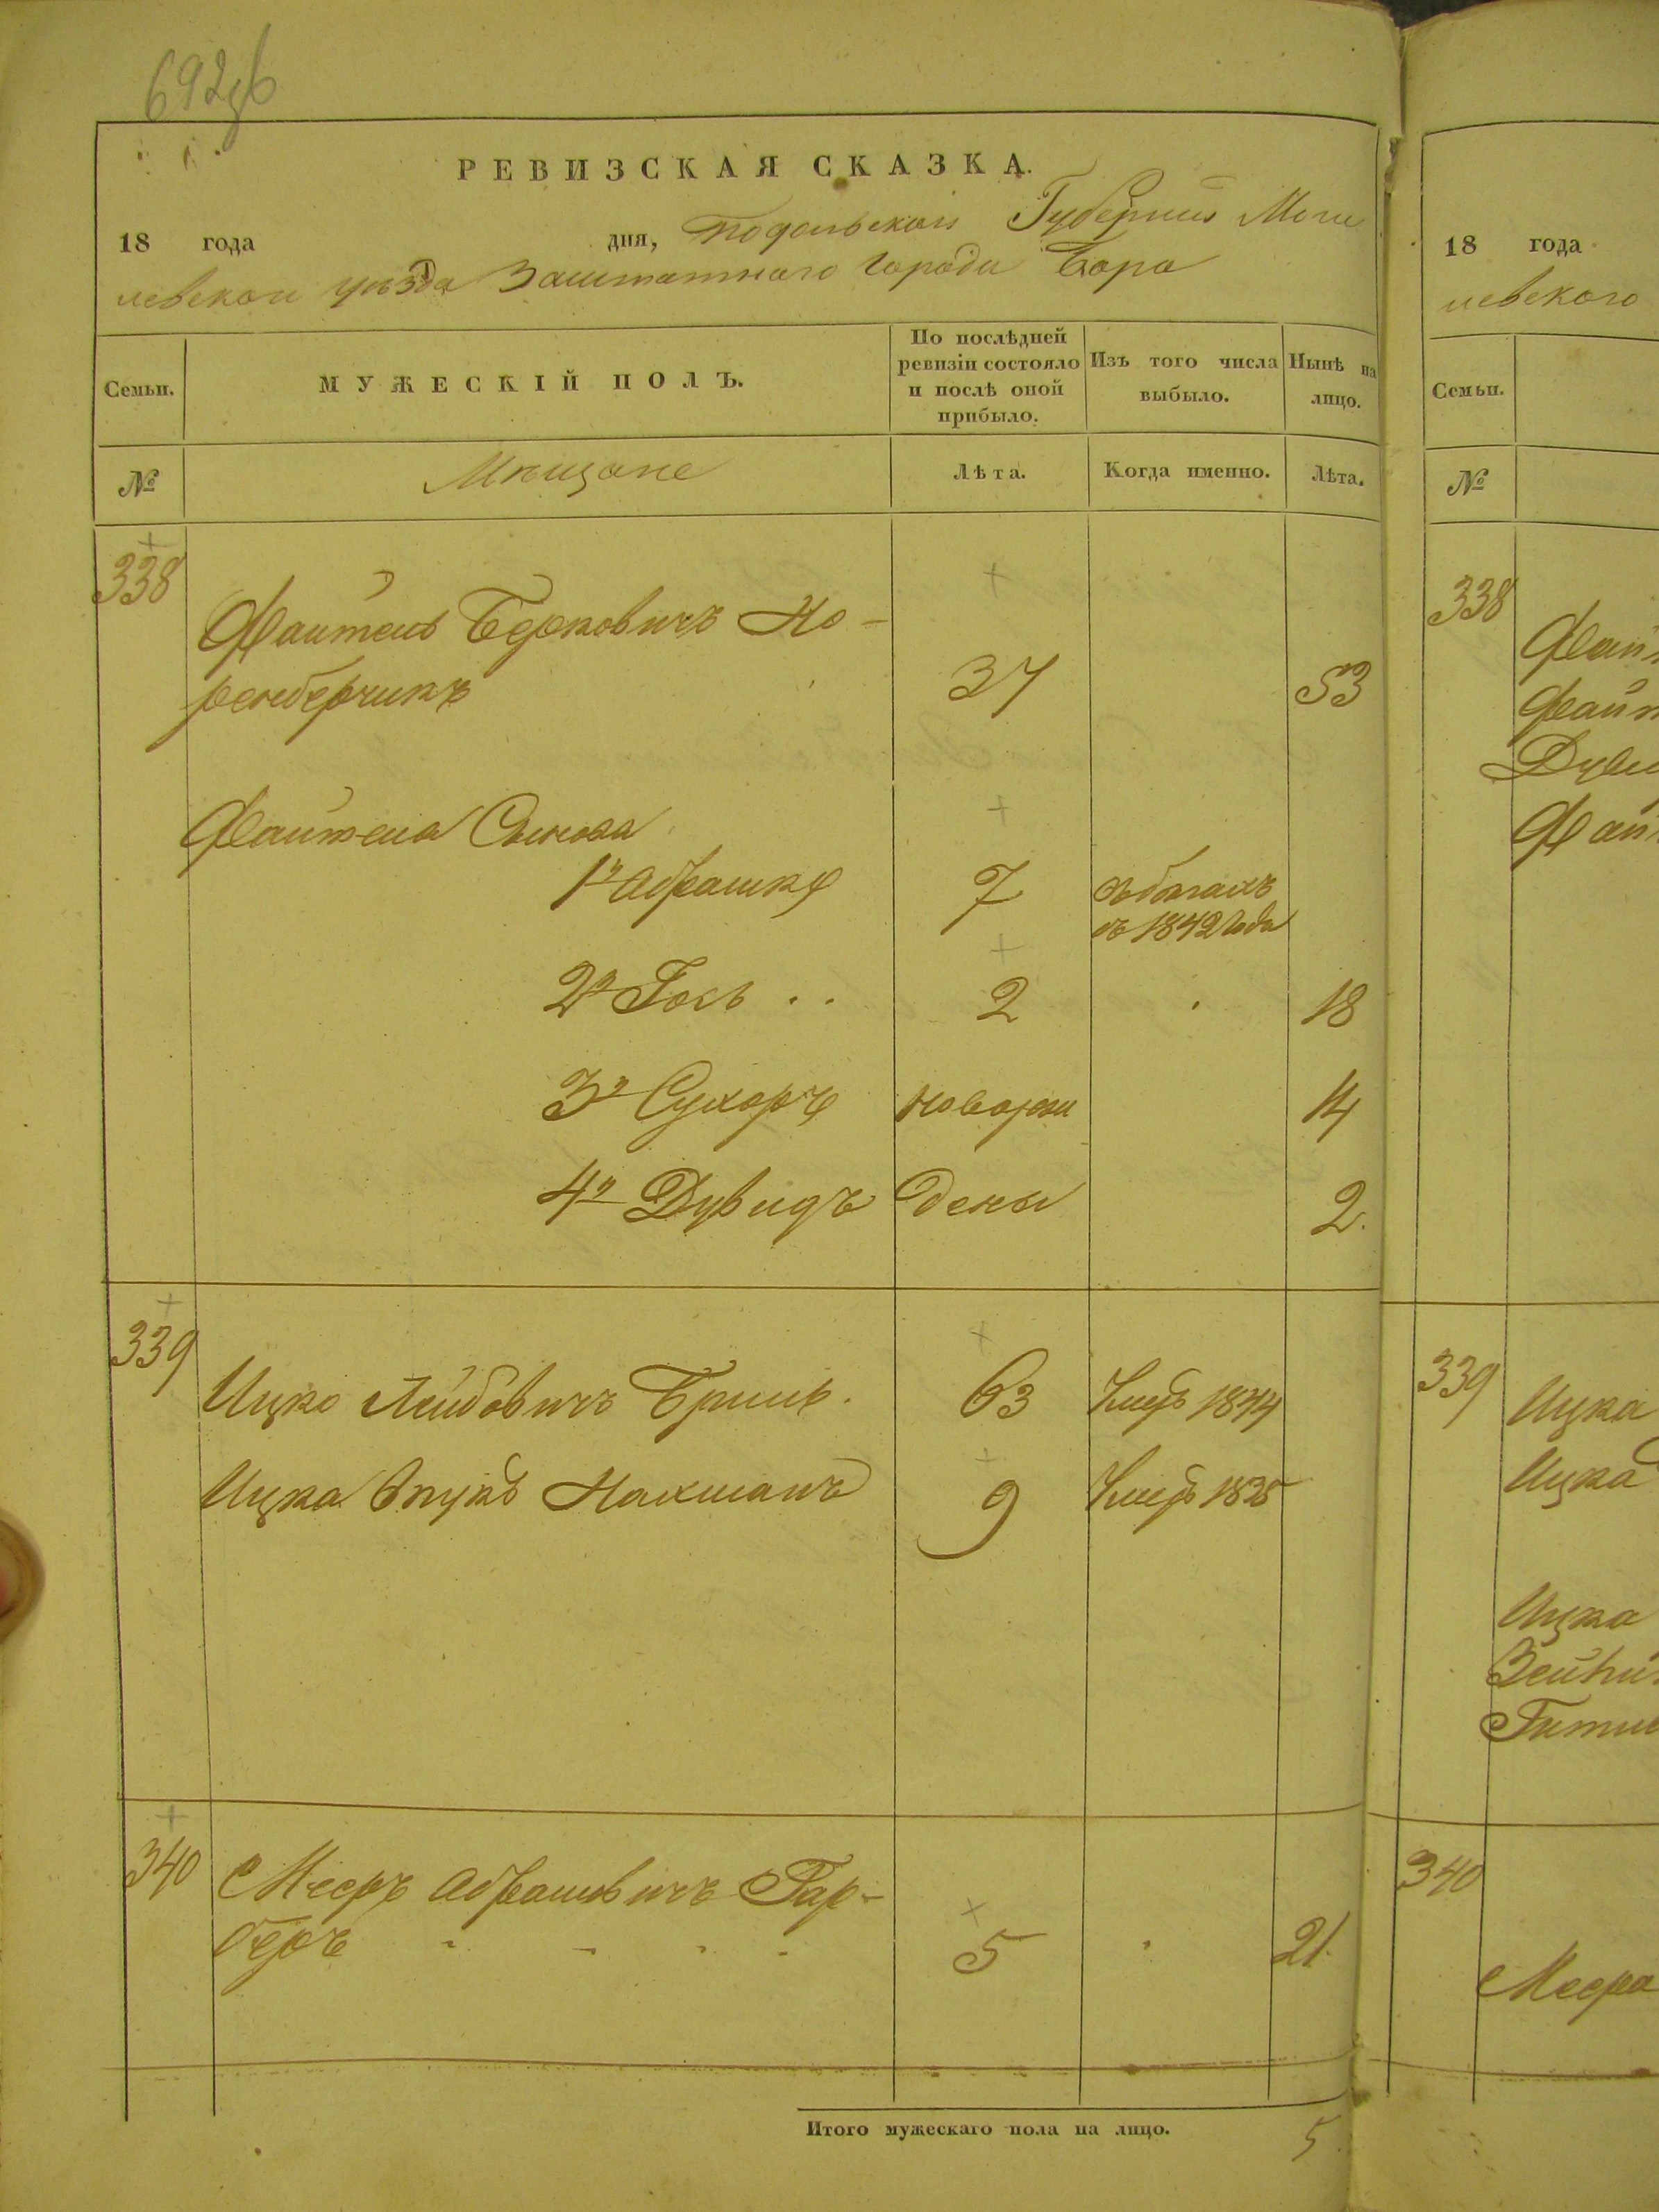 692 об
РЕВИЗСКАЯ СКАЗКА.
18 года дня, Подольской Губернии Моги
левскои уѣзда Заштатного города Бара
Семьи.
МУЖЕСКІЙ ПОЛЪ.
По послѣдней ревизіи состояло и послѣ оной прибыло.
Изъ того числа выбыло.
Нынѣ на лицо.
№
Мѣщане
Лѣта.
Когда именно.
Лѣта.
338
Файтель Берковичъ Но-
ренберчикъ 37 53
Файтеля Сыновя
1й Абрашко 7 въ бѣгахъ
съ 1842 года
2й Гось 2 18
3й Сухоръ новорож 14
4й Дувидъ дены 2.
339
Ицко Лейбовичъ Бриль. 63 Умеръ 1844
Ицка Внукъ Нахманъ 9 Умеръ 1835
340 Мееръ Абрамовичъ Гар-
беръ 5 21
Итого мужескаго пола на лицо. 5
18 года
левского
Семьи.
№
338
Фай
Файт
Дуви
Фай
339
Ицка
Ицка
Ицка
Зейни
Гитл
340
Меера